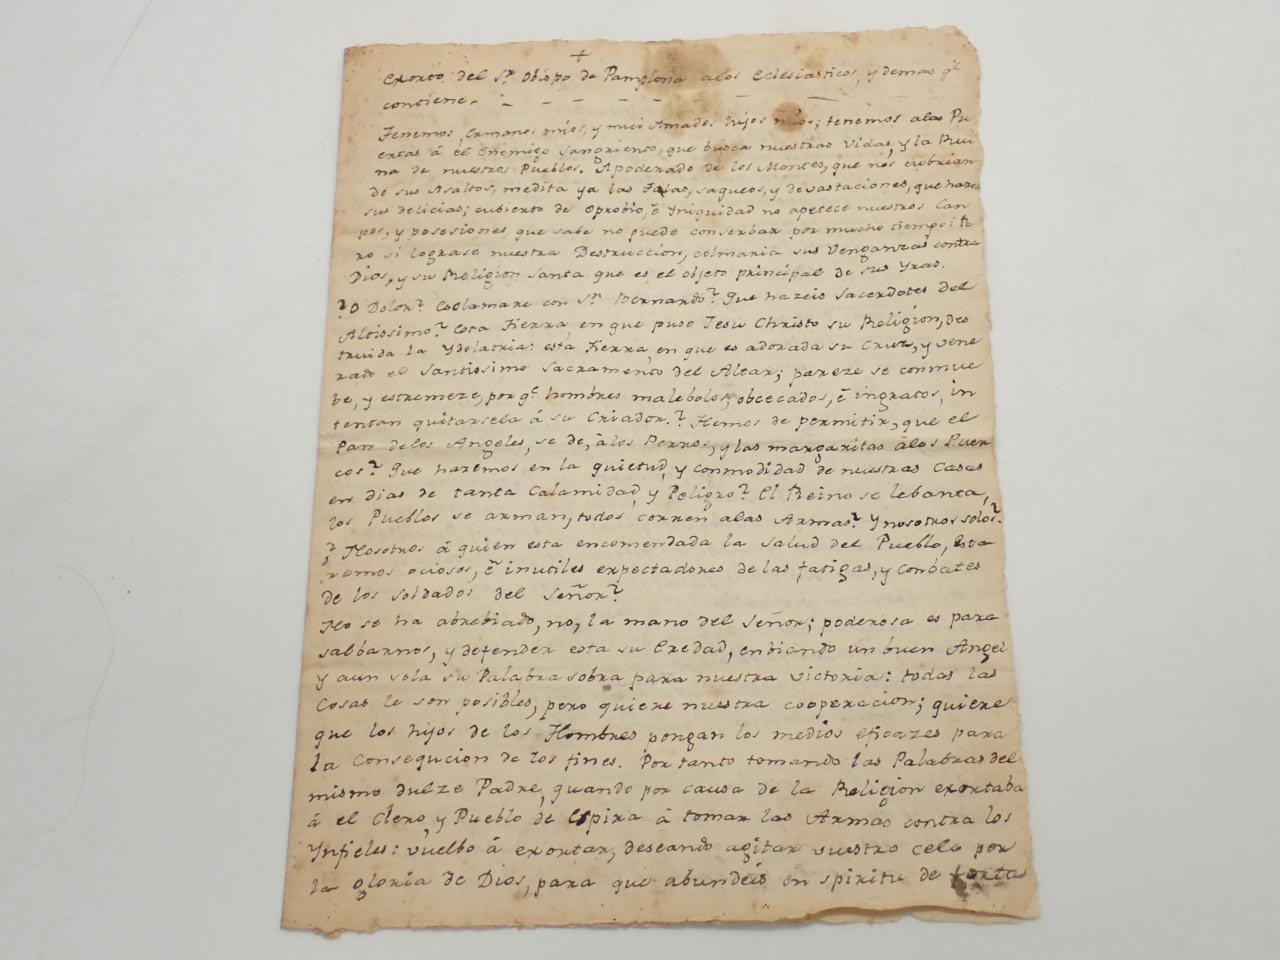 +
Exorto del Sr. Obispo de Pamplona a los Eclesiasticos, y demas qe.
contiene. - - - - - -
Tenemos, Ermanos mios, y mui Amados hijos mios; tenemos alas Pu
ertas á el Enemigo sangriento, que busca nuestras vidas, y la Rui
na de nuestros Pueblos. Apoderado de los Montes, que nos cubrian
de sus Asaltos, medita ya las Talas, saqueos, y devastaciones, que hacen
sus delicias; cubierto de oprobio, é Yniquidad no apetece nuestros Cam
pos, y posesiones, que sabe no puede conserbar por mucho tiempo: pe
ro si lograse nuestra Destruccion, colmaria sus Venganzas contra
Dios, y su Religion Santa que es el objeto principal de sus Yras.
?O Dolor? Exclamare con Sn. Bernardo? Que hazeis Sacerdotes del
Altissimo? Esta Tierra, en que puso Jesu Christo su Religion, des
truida la Ydolatria: esta Tierra, en que es adorada su Cruz, y vene
rado el Santissimo Sacramento del Altar; pareze se conmue
be, y estremeze, por qe. hombres malebolos, obcecados, é ingratos, in
tentan quitarsela á su Criador.? Hemos de permitir, que el
Pan delos Angeles, se de, álos Perros, y las margaritas álos Puer
cos? Que haremos en la quietud, y conmodidad de nuestras Casas
en dias de tanta Calamidad, y Peligro? El Reino se lebanta,
los Pueblos se arman, todos corren alas Armas? Y nosotros solos?
? Nosotros á quien esta encomendada la salud del Pueblo, Esta
remos ociosos, é inutiles expectadores de las fatigas, y Conbates
de los soldados del Señor?
No se ha abrebiado, no, la mano del Señor; poderosa es para
salbarnos, y defender esta su Eredad, enbiando un buen Angel
y aun sola su Palabra sobra para nuestra victoria: todas las
Cosas le son posibles, pero quiere nuestra cooperacion; quiere
que los hijos de los Hombres pongan los medios eficazes para
la Consegucion de los fines. Por tanto tomando las Palabras del
mismo dulze Padre, quando por causa de la Religion exortaba
á el Clero, y Pueblo de Espira á tomar las Armas contra los
Ynfieles: vuelbo á exortar, deseando agitar vuestro celo por
la gloria de Dios, para que abundeis en spiritu de forta